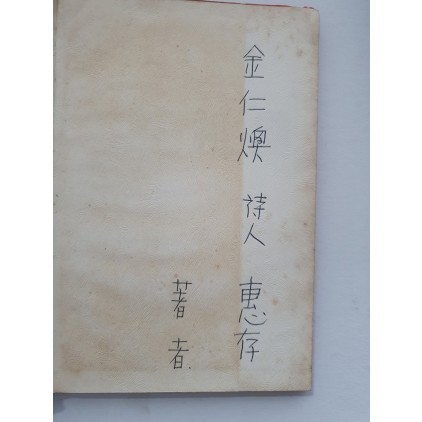 金仁煥 詩人 惠存
著者